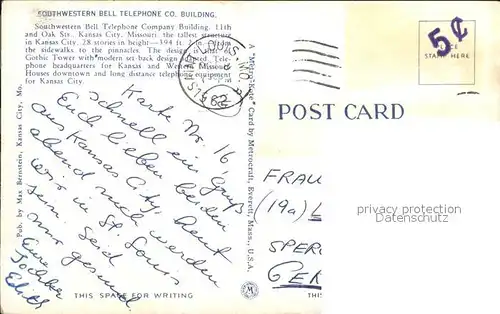 SOUTHWESTERN BELL TELEPHONE CO. BUILDING.
Southwestern Bell Telephone Company Building. 11th
and Oak Sts., Kansas City, Missouri. Missouri
the tallest structure in
Kansas City. 28 stories in height—394 ft. from
the sidewalks to the pinnacles. The design is that of
Gothic Tower with modern set back design. Tele-
phone headquarters for Kansas and Western Missouri.
Houses downtown and long distance telephone equipment
for Kansas City.
Pub. by Max Bernstein, Kansas City, Mo.
Karte Nr. 16,
schnell ein Gruß
Euch lieben beiden
aus Kansas City, heut
abend noch werden
wir in St. Louis
sein. Seid
nur gesund
Eure
Tochter
Edith
THIS SPACE FOR WRITING
A Card by Metrocraft, Everett, Mass., U.S.A.
ST
MO.
1962
5¢
STAMP HERE
POST CARD
FRAU
(19a) L
SPER
GER
privacy protection
Datenschutz